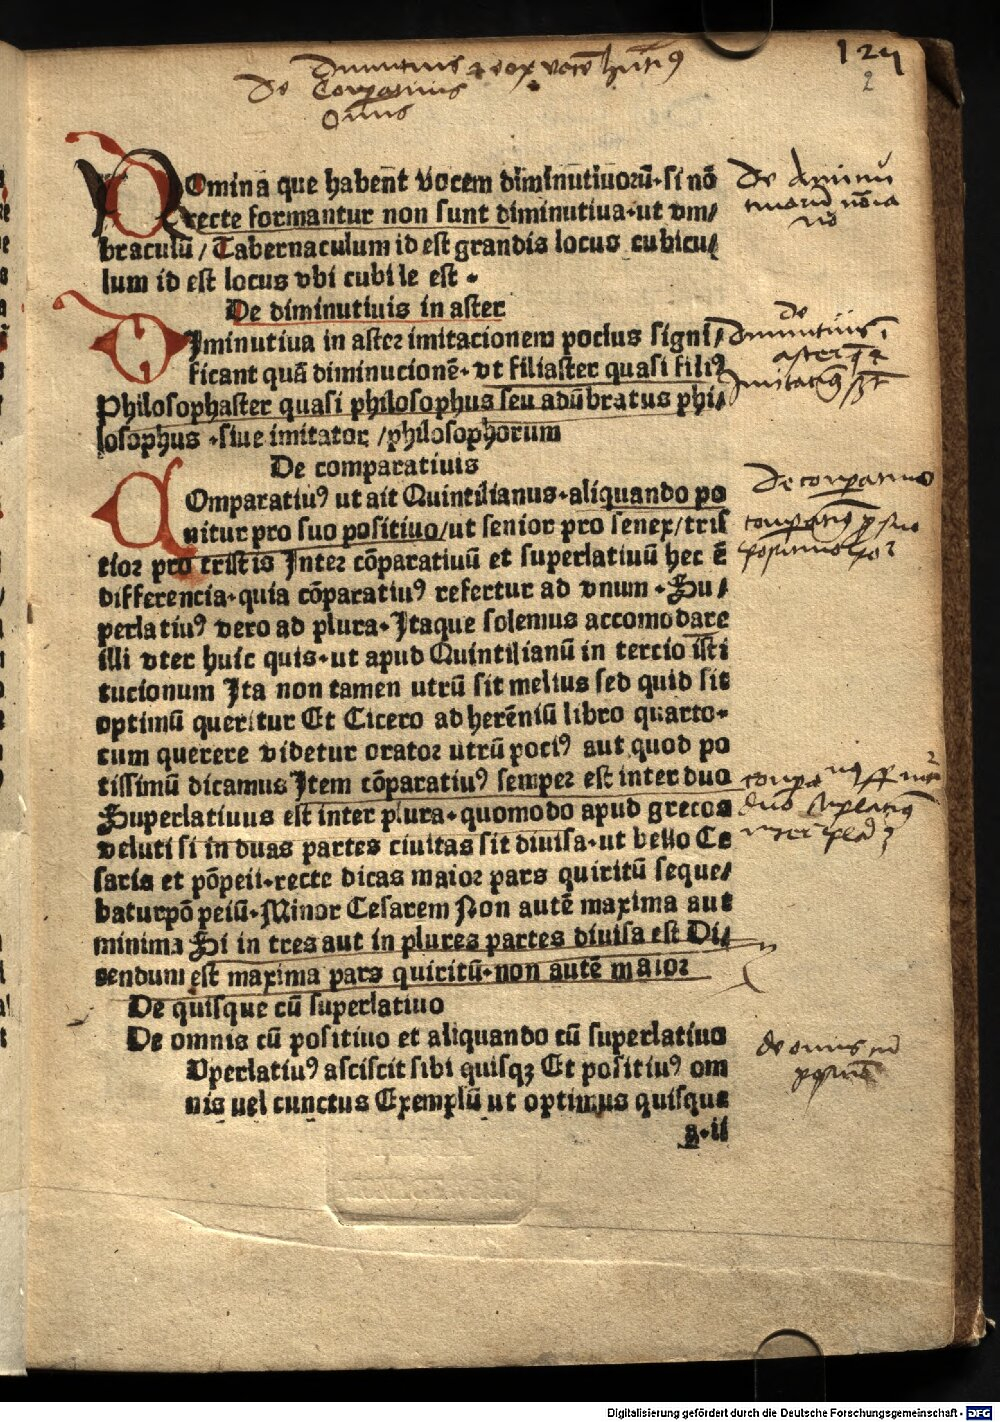 124
2
NOmina que habent vocem diminutiuorū. si nō
recte formantur non sunt diminutiua. ut vm/
braculū / Tabernaculum id est grandis locus cubicu/
lum id est locus vbi cubile est .
De diminutiuis in aster
DIminutiua in aster imitacionem pocius signi/
ficant quā diminucionē. vt filiaster quasi filiꝰ
Philosophaster quasi philosophus seu adūbratus phi/
losophus . siue imitator / philosophorum
De comparatiuis
COmparatiuꝰ ut ait Quintilianus. aliquando po
nitur pro suo positiuo/ut senior pro senex/tris
tior pro tristis Inter cōparatiuū et superlatiuū hec ē
differencia. quia cōparatiuꝰ refertur ad vnum . Su/
perlatiuꝰ vero ad plura. Itaque solemus accomodare
illi vter huic quis. ut apud Quintilianū in tercio īsti
tucionum Ita non tamen utrū sit melius sed quid sit
optimū queritur Et Cicero ad herēniū libro quarto.
tum querere videtur orator utrū pociꝰ aut quod po
tissimū dicamus Item cōparatiuꝰ semper est inter duo
Superlatiuus est inter plura. quomodo apud grecos
veluti si in duas partes ciuitas sit diuisa. ut bello Ce
saris et pōpeii. recte dicas maior pars quiritū seque/
batur pō peiū. Minor Cesarem Non autē maxima aut
minima Si in tres aut in plures partes diuisa est Di/
sendum est maxima pars quiritū. non autē maior
De quisque cū superlatiuo
De omnis cū positiuo et aliquando cū superlatiuo
Vperlatiuꝰ asciscit sibi quisqꝫ Et positiuꝰ om
nis uel cunctus Exemplū ut optimus quisque
a.ii
De comparatiuo
Digitalisierung gefördert durch die Deutsche Forschungsgemeinschaft - DFG